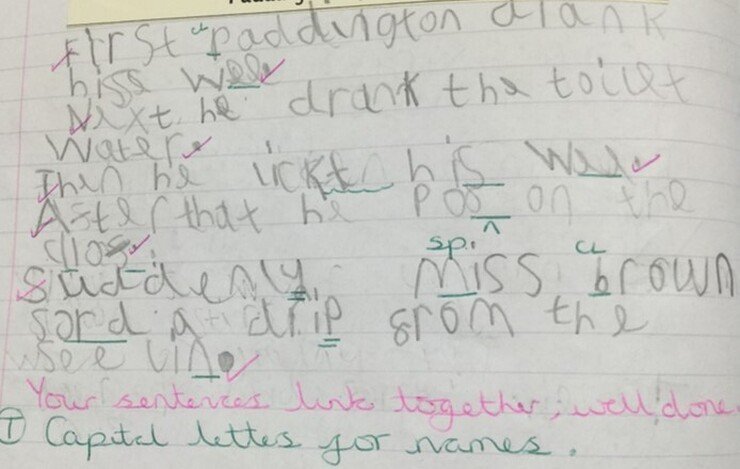 First paddington drank
hiss wee
Next he drank the toilet
water.
Then he lickt his wee
Aster that he poo on the
clos.
Suddenly Miss brown
sord a drip from the
see lin.
Your sentences link together, well done.
T Capital lettes for names.